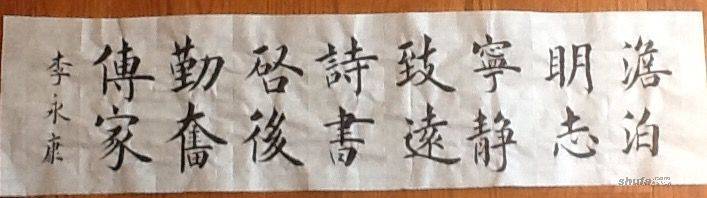 澹泊
明志
寧静
致遠
詩書
启後
勤奮
傳家
李永康
shufa.com